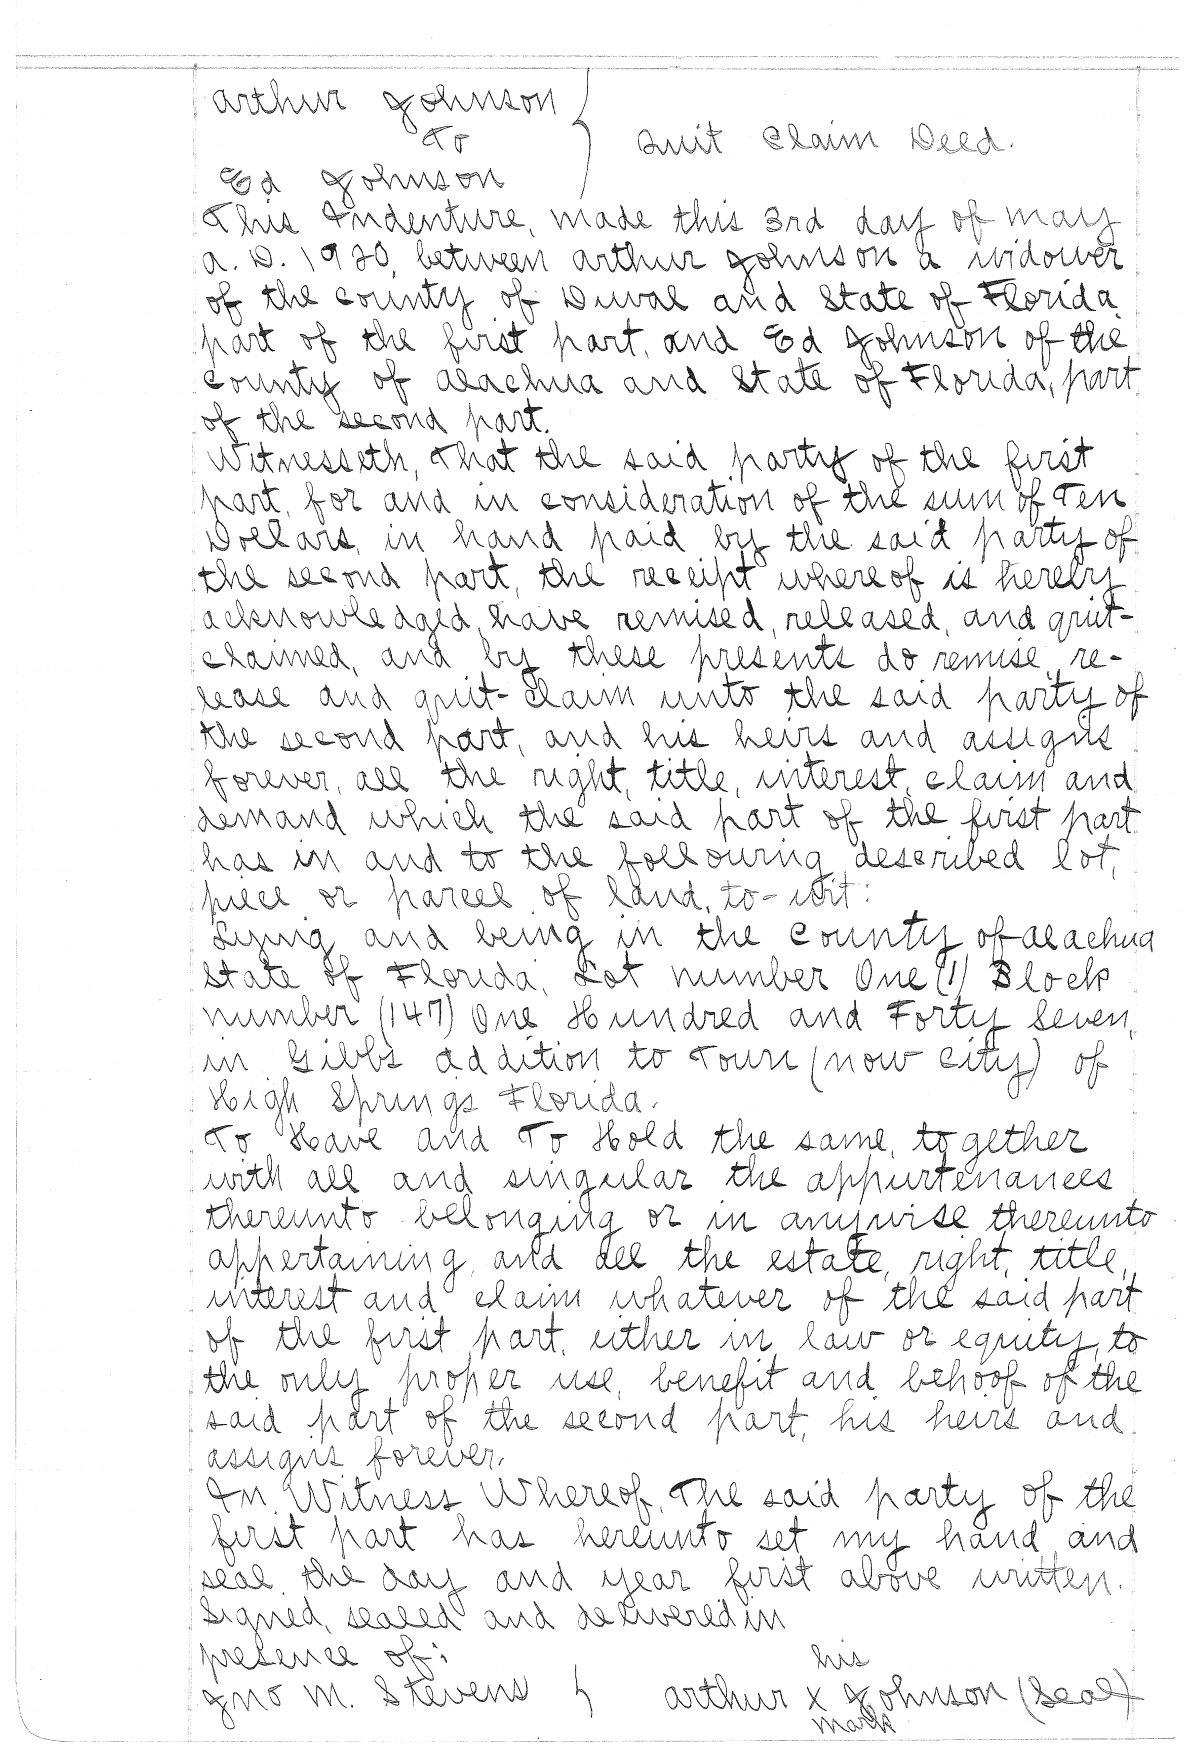 Arthur Johnson
To
Quit Claim Deed.
Ed Johnson
This Indenture, made this 3rd day of May
A. D. 1920, between Arthur Johnson a widower
of the County of Duval and State of Florida
part of the first part, and Ed Johnson of the
County of Alachua and State of Florida, part
of the second part.
Witnesseth, That the said party of the first
part, for and in consideration of the sum of Ten
Dollars, in hand paid by the said party of
the second part, the receipt whereof is hereby
acknowledged, have remised, released, and quit-
claimed, and by these presents do remise, re-
lease and quit-claim unto the said party of
the second part, and his heirs and assigns
forever, all the right, title, interest, claim and
demand which the said part of the first part
has in and to the following described lot,
piece or parcel of land, to-wit:
Lying and being in the County of Alachua
State of Florida; Lot number One (1) Block
number (147) One Hundred and Forty Seven,
in Gibbs addition to Town (now City) of
High Springs Florida.
To Have and To Hold the same, together
with all and singular the appurtenances
thereunto belonging or in anywise thereunto
appertaining, and all the estate, right, title,
interest and claim whatever of the said part
of the first part, either in law or equity, to
the only proper use, benefit and behoof of the
said part of the second part, his heirs and
assigns forever.
In Witness Whereof, The said party of the
first part has hereunto set my hand and
seal the day and year first above written.
Signed, sealed and delivered in
presence of:
his
Jno M. Stevens Arthur x Johnson (Seal)
mark